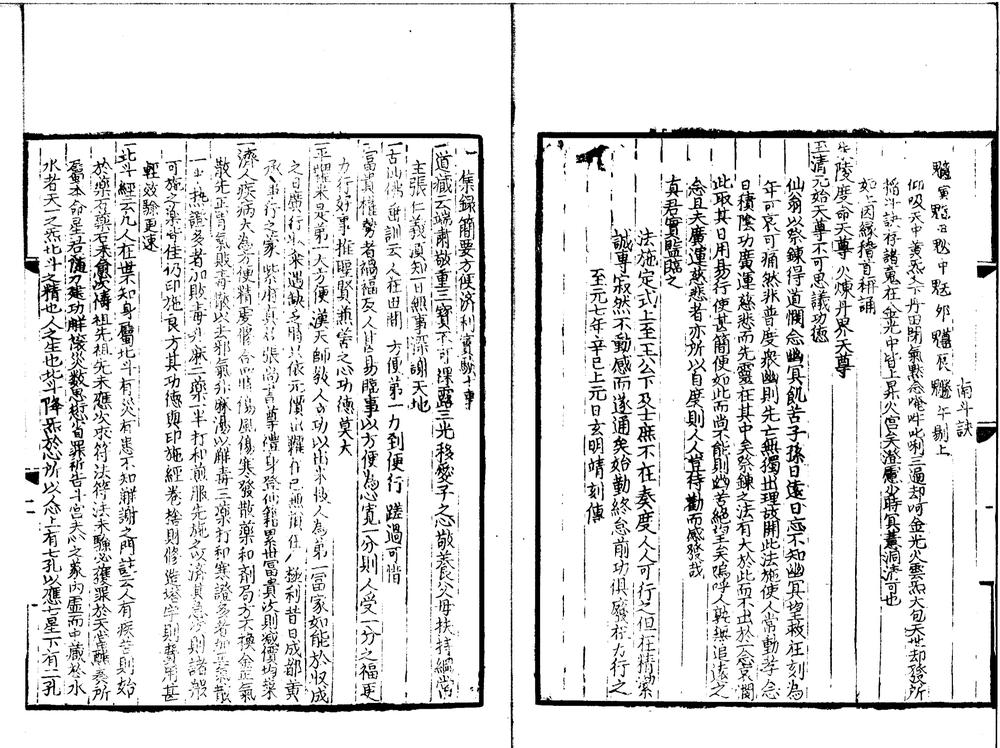 南斗訣
魓寅魒巳魓申魒外魓辰魓午剔上
仰吸天中黃炁入丹田閉氣默念唵吽唎三遍却呵金光火雲炁大包天世却發所
㨂斗訣存諸魂在金光中皆上昇火宮矣澄慮少時冥㝠洞清可也
如上因緣稽首稱誦
朱陵度命天尊 火煉丹界天尊
玉清元始天尊不可思議功德
仙翁以祭鍊得道憫念幽冥飢苦子孫日遠日忘不知幽冥望救枉刻為
年可哀可痛然非普度衆幽則先亡無獨出理故開此法施使人常動孝念
日積陰功廣運慈悲而先靈在其中矣祭鍊之法有大於此而不出於一念哀憫
此取其日用易行使甚簡便如此而尚不能則幽苦絕望矣嗚呼人乾無追遠之
念且夫廣運慈悲者亦所以自度則人人豈待勸而感發哉
真君實監臨之
法施定式上至王公下及士庶不在奏度人人可行之但在精潔
誠專寂然不動感而遂通矣始勤終怠前功俱廢在力行之
至元七年辛巳上元日玄明靖刻傳
集録簡要方便濟利實驗十事
一道藏云端肅敬重三寶不可裸露三光移愛子之心敬養父母扶持綱常
主張仁義須知日無事深謝天地
一古仙佛垂訓云人在田間 方便第一力到便行 蹉過可惜
一富貴權勢者禍福反人甚易臨事以方便為心寬一分則人受一分之福更
力行好事推廣賢煎筈之心功德莫大
一平糶米是第一大方便漢天師敎人功以出米救人為第一富家如能於収成
之日廣行収糴遇缺之時只依元價出糶在己無損在人極利昔日成都黃
承出行之蒙紫府真君張尚書尊禮身登仙籍累世富貴次則減價均糶
一濟人疾病大為方便精虔脩合如將傷風傷寒發散藥和劑局方不換金正氣
散先正胃氣敗毒散以去邪氣升麻湯以解毒三藥打和寒證多者加正氣散
一半熱證多者加敗毒升麻二藥一半打和煎服先施之以濟倶急次則諸般
可施之藥皆佳仍印施良方其功德與印施經卷捨財修造塔宇則費用甚
輕效驗更速
一北斗經云凡人在世不知身屬北斗有災有患不知解謝之門註云人有疾苦則始
於藥石藥石未愈次禱祖先祖先未應次求符法符法未驗必獲罪於天當醮奏所
屬本命星君隨力建功解禳災數懇悲省罪祈告斗宮夫心之蒙內虛而中藏於水
水者天一之炁北斗之精也人之生也北斗降炁於心所以人心上有七孔以應七星下有二孔